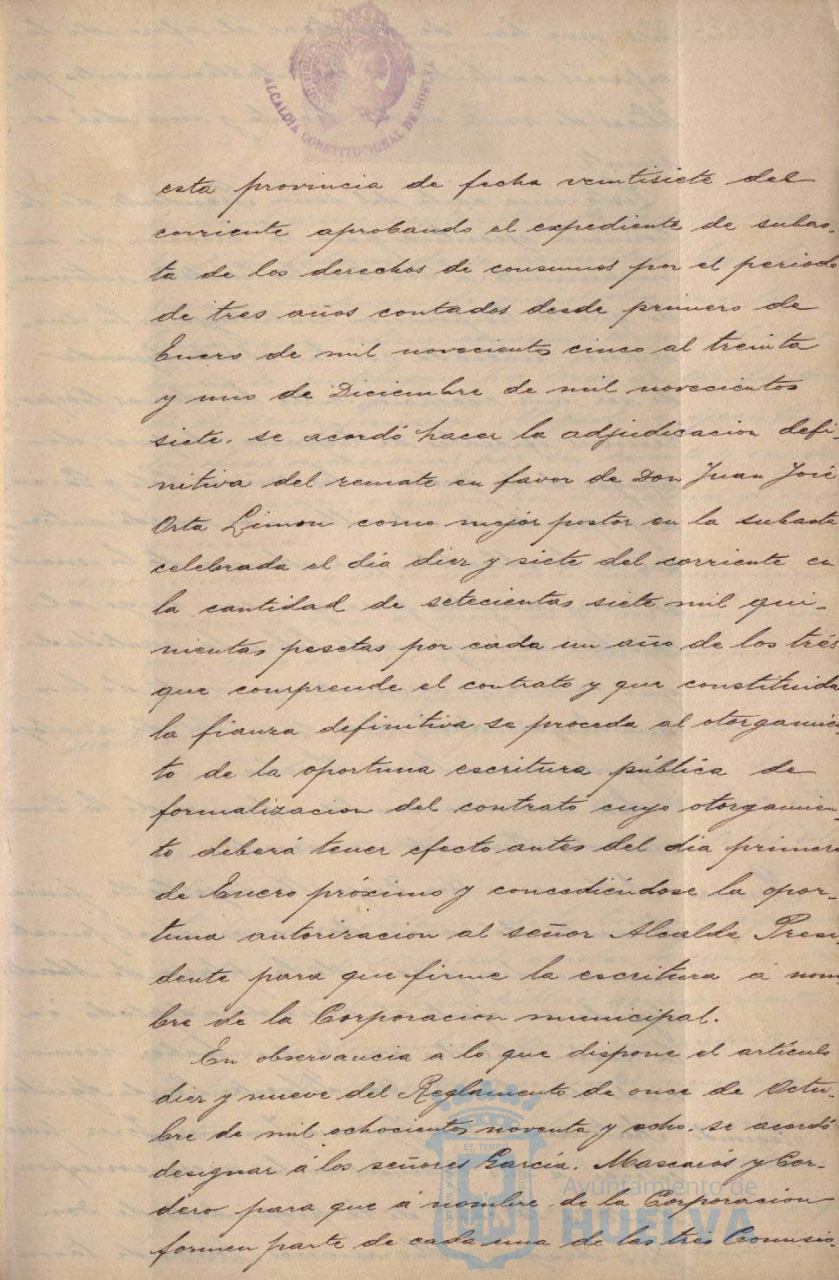 ALCALDIA CONSTITUCIONAL DE HUELVA
esta provincia de fecha veintisiete del
corriente aprobando el expediente de subas-
ta de los derechos de consumos por el periodo
de tres años contados desde primero de
Enero de mil novecientos cinco al treinta
y uno de Diciembre de mil novecientos
siete. se acordó hacer la adjudicacion defi-
nitiva del remate en favor de Don Juan José
Orta Limon como mejor postor en la subasta
celebrada el dia diez y siete del corriente en
la cantidad de setecientas siete mil qui-
nientas pesetas por cada un año de los trés
que comprende el contrato y que constituida
la fianza definitiva se proceda al otorgamien
to de la oportuna escritura pública de
formalizacion del contrato cuyo otorgamien-
to deberá tener efecto antes del dia primero
de Enero próximo y concediéndose la opor-
tuna autorizacion al señor Alcalde Presi
dente para que firme la escritura á nom
bre de la Corporacion municipal.
En observancia á lo que dispone el artículo
diez y nueve del Reglamento de once de Octu-
bre de mil ochocientos noventa y ocho. se acordó
designar á los señores García. Mascarós y Cor-
dero para que á nombre de la Corporacion
formen parte de cada una de las tres Comisio
Ayuntamiento de
HUELVA